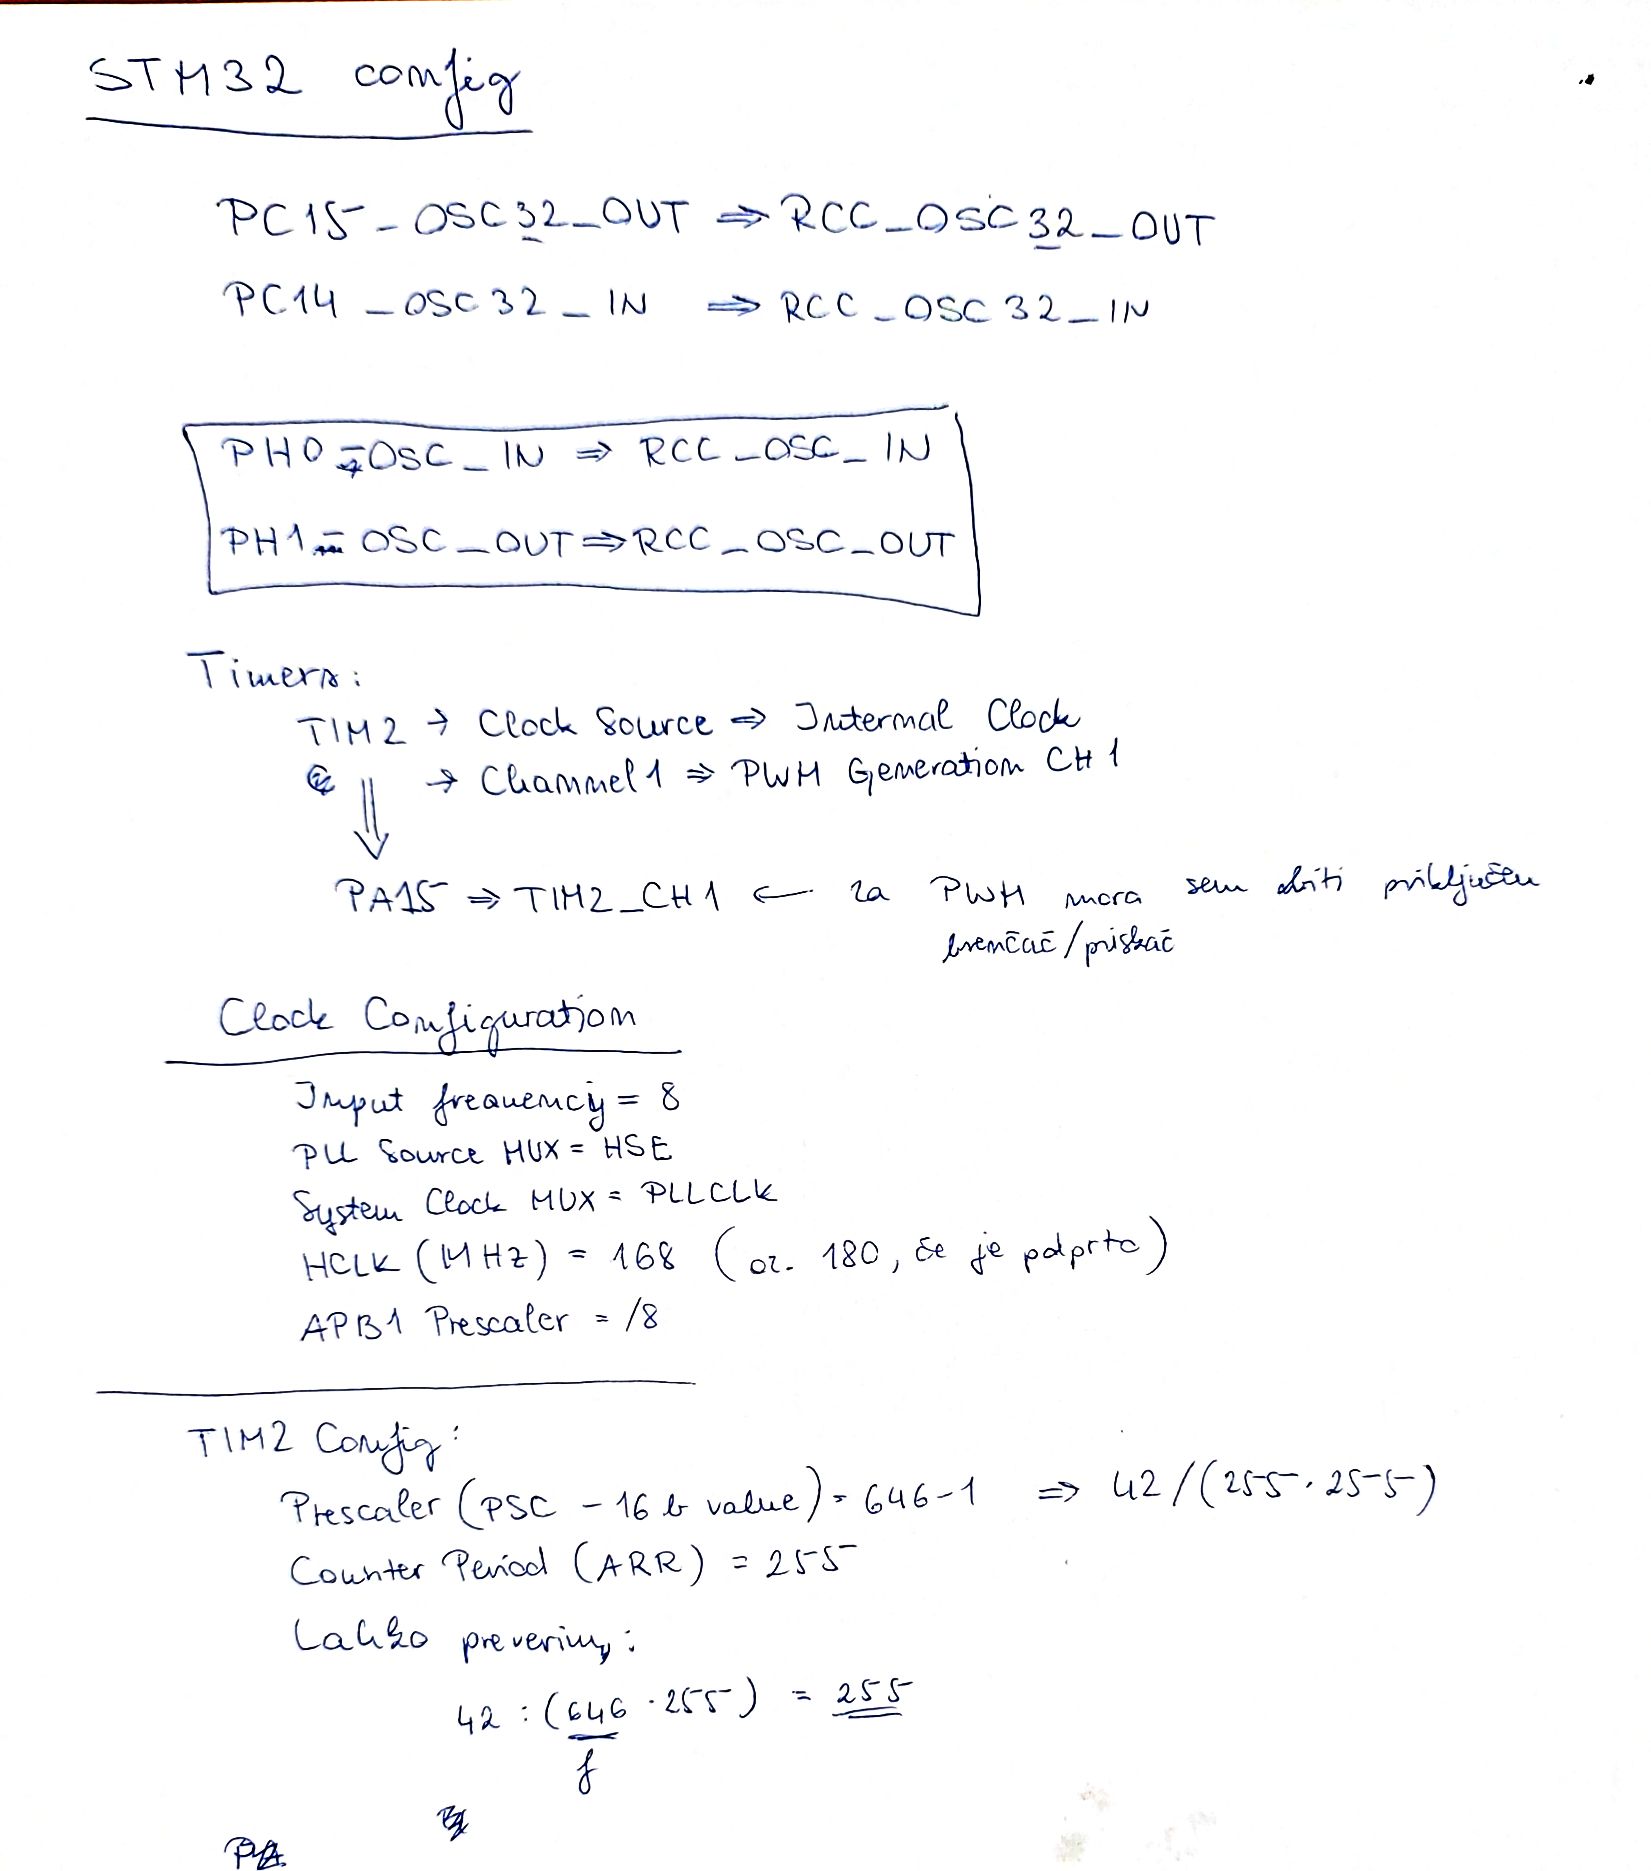 STM32 config
PC15-OSC32_OUT ⇒ RCC_OSC32_OUT
PC14_OSC32_IN ⇒ RCC_OSC32_IN
PH0-OSC_IN ⇒ RCC_OSC_IN
PH1-OSC_OUT ⇒ RCC_OSC_OUT
Timers:
TIM2 → Clock Source ⇒ Internal Clock
→ Channel1 ⇒ PWM Generation CH1
PA15 ⇒ TIM2_CH1 ← za PWM mora sem biti priključen
brenčač/piskač
Clock Configuration
Input frequency = 8
PLL Source MUX = HSE
System Clock MUX = PLLCLK
HCLK (MHz) = 168 (oz. 180, če je podprto)
APB1 Prescaler = /8
TIM2 Config:
Prescaler (PSC - 16 b value) = 646-1 ⇒ 42/(255·255)
Counter Period (ARR) = 255
Lahko preverimo:
42 : (646 · 255) = 255
f